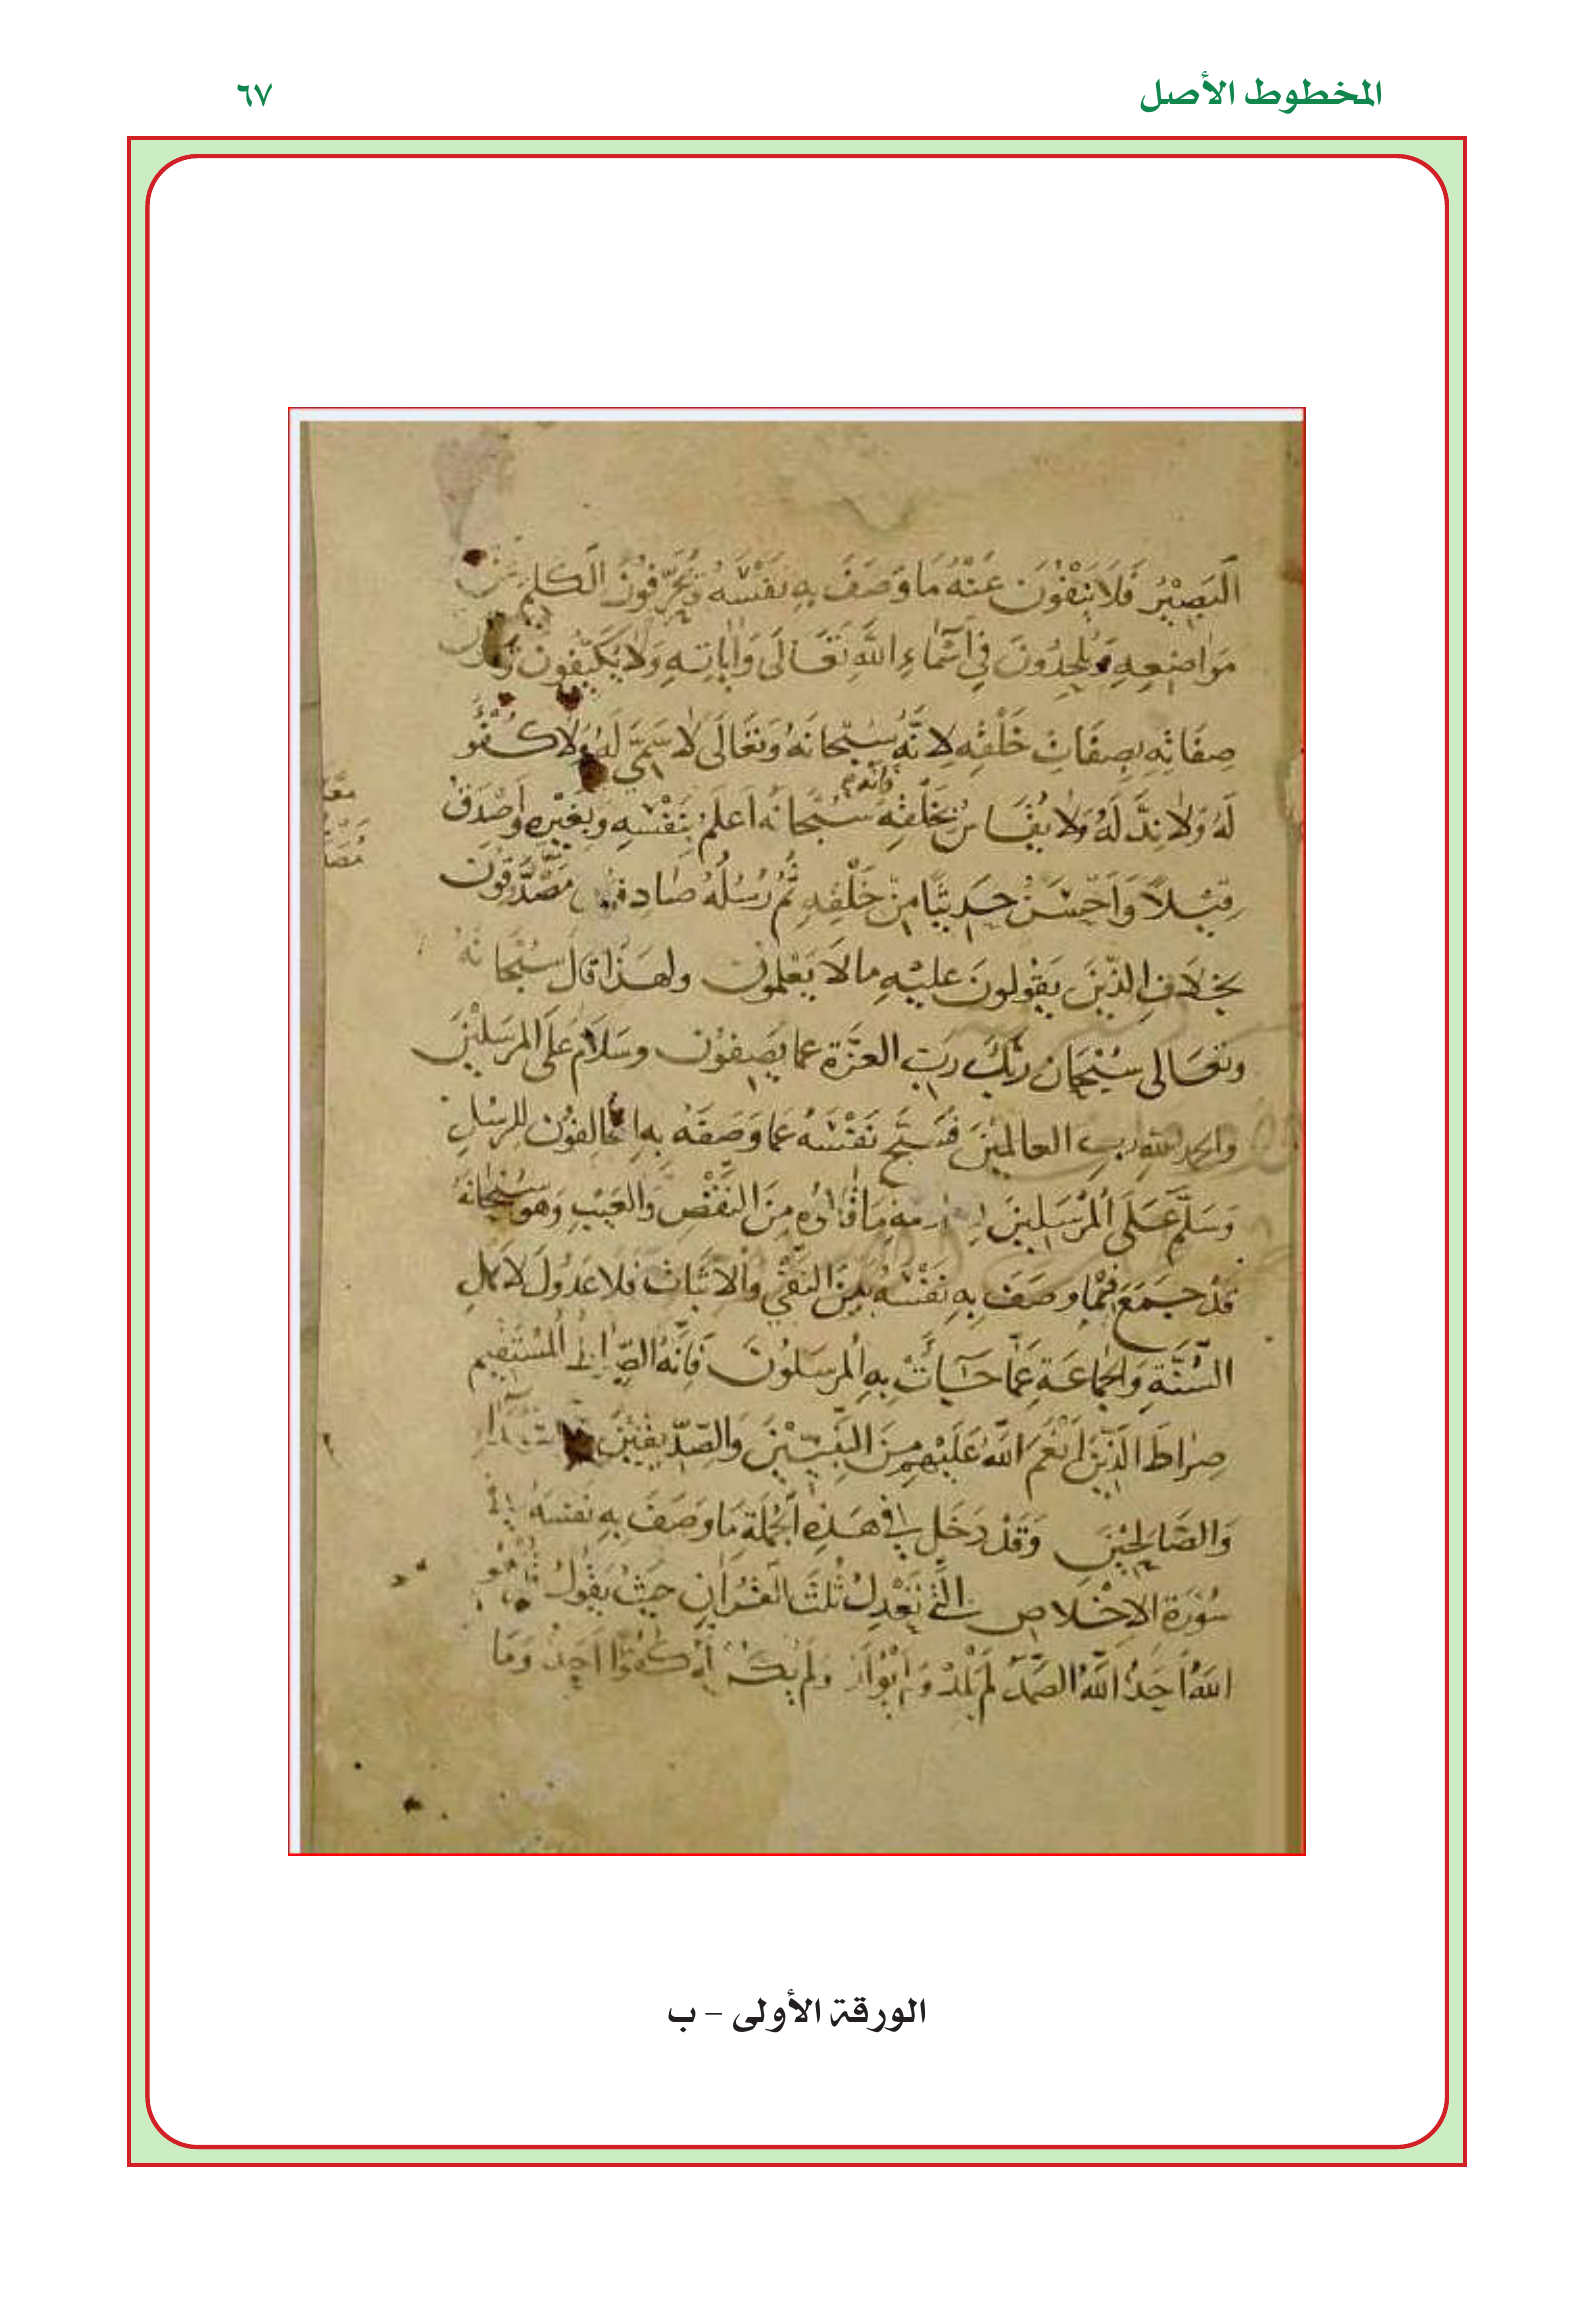 المخطوط الأصل
٦٧
البَصِيْرُ فَلَا يَنْفُوْنَ عَنْهُ مَا وَصَفَ بِهِ نَفْسَهُ وَيُحَرِّفُونَ الْكَلِمَ عَنْ
مَوَاضِعِهِ وَيُلحِدُونَ فِي أَسْمَاءِ اللَّهِ تَعَالَى وَاٰيَاتِهِ وَلَا يُكَيِّفُونَ
صِفَاتِهِ بِصِفَاتِ خَلْقِهِ لِانَّهُ سُبْحَانَهُ وَتَعَالَى لَا سَمِيَّ لَهُ وَلَا كُفُؤَ
لَهُ وَلَا نِدَّ لَهُ وَلَا يُقَاسُ بِخَلْقِهِ سُبْحَانَهُ اَعلَمُ بِنَفْسِهِ وَبِغَيْرِهِ وَاَصْدَقُ
فانه
قِيْلاً وَاَحْسَنُ حَدِيثًا مِنْ خَلْقِهِ ثُمَّ رُسُلُهُ صَادِقُون مُصَدَّقُون
بِخِلَافِ الَّذِيْنَ يَقُولُونَ عَلَيْهِ مَا لَا يَعْلَمُونَ ولهَذَا قَالَ سُبْحَانَهُ
وَتَعَالى سُبْحَانَ رَبِّكَ رَبِّ العزَّةِ عما يَصِفُوْن وسَلَامٌ عَلَى المرسَلِيْنَ
والحمد لله رب العالميْنَ فَسَبَّحَ نَفْسَهُ عَمَا وَصَفَهُ بِهِ المخالِفُوْن للرسُلِ
وَسَلَّمَ عَلَى الْمُرْسَلِينَ مَا قَالُوهُ مِنَ النَّقْصِ وَالعَيْبِ وَهوَ سُبْحَانَهُ
قَدْ جَمَعَ فِيْمَا وَصَفَ بِهِ نَفْسَهُ بَيْنَ النَفْيِ وَالاثبَاتِ فَلَا عُدُولَ لِاَهْلِ
السُّنَّةِ وَالجَمَاعَةِ عَمَّا جَاءَتْ بِهِ المُرسَلُونَ فَاِنَّهُ الصِّرَاطُ الْمُسْتَقِيْم
صِرَاطَ الَّذِيْنَ اَنْعَمَ اللَّهُ عَلَيْهِمْ مِنَ النَّبِيِّيْنَ وَالصِّدِّيْقِيْنَ وَالشُّهَدَاءِ
وَالصَّالِحِيْنَ وَقَدْ دَخَلَ فِي هَذِهِ الْجُمْلَةِ مَا وَصَفَ بِهِ نَفسَهُ فِي
سُوْرَةِ الاِخْلَاصِ الَّتِي تَعْدِلُ ثُلُثَ القُرْاٰنِ حَيْثُ يَقُولُ قُلْ هُوَ
اللَّهُ اَحَدُ اللَّهُ الصَّمَدُ لَمْ يَلِدْ وَلَمْ يُوْلَدْ وَلَمْ يَكُنْ لَهُ كُفُوًا اَحَدٌ وَمَا
الورقة الأولى – ب